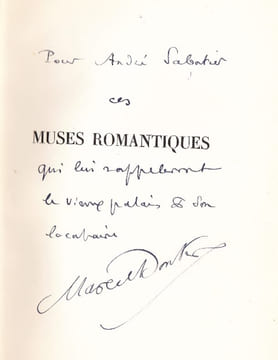 Pour André Sabatier
ces
MUSES ROMANTIQUES
qui lui rappelleront
le vieux palais & son
locataire
Marcel Bouteron